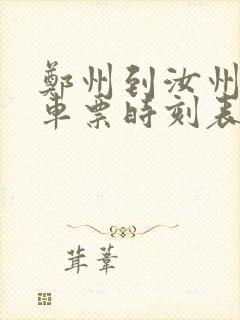 鄭州到汝州
車票時刻表
茸葦